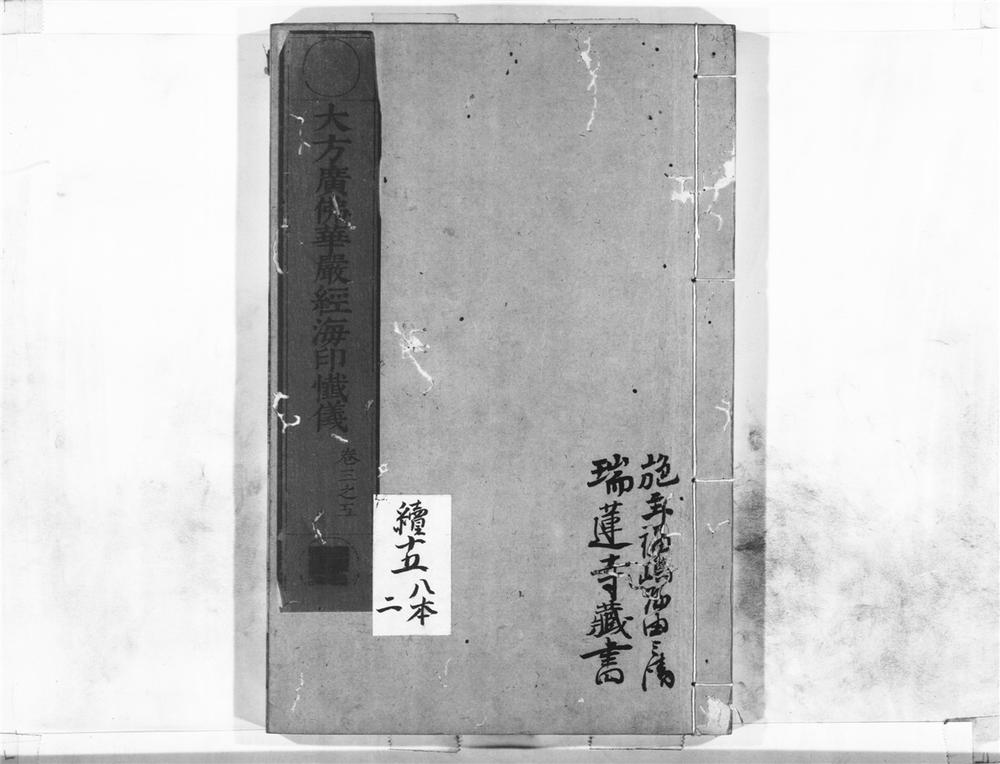 施主福嶋
瑞蓮寺藏書
大方廣佛華嚴經海印懺儀
卷三之五
續十五
八本
二